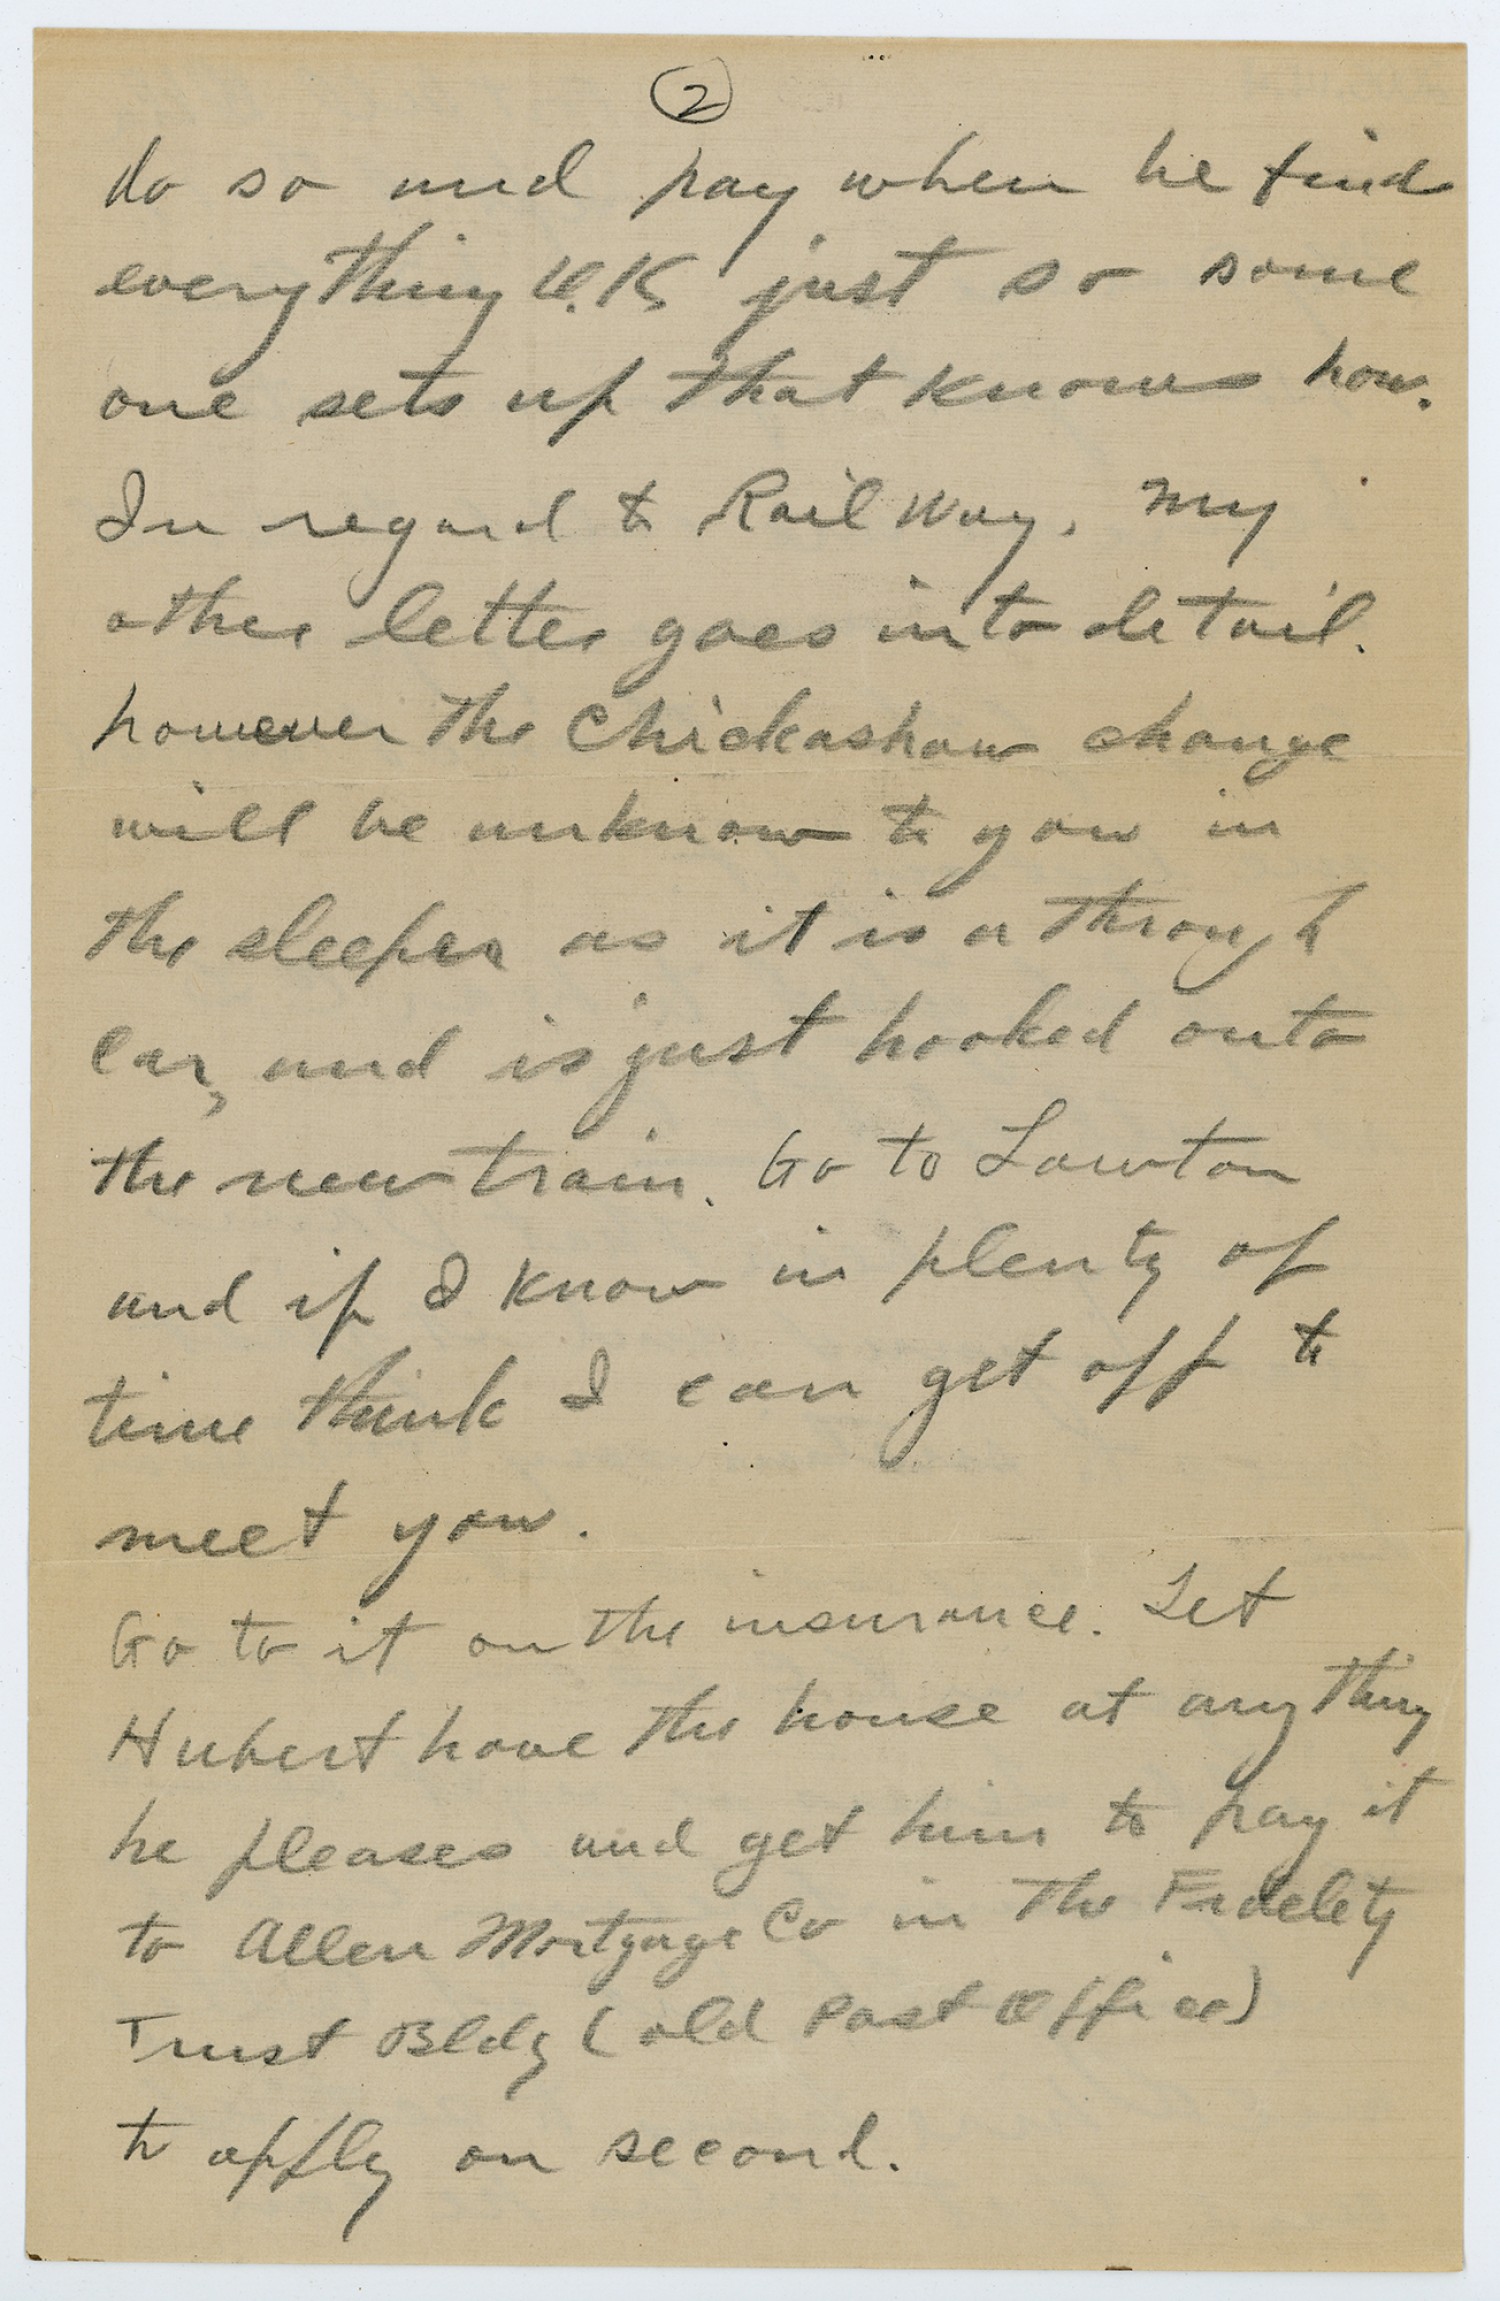 2
do so and pay when he finds
everything O.K just so some
one sets up that knows how.
In regard to Rail Way. My
other letter goes into detail.
however the Chickashaw change
will be unknow to you in
the sleeper as it is a through
car, and is just hooked onto
the new train. Go to Lawton
and if I know in plenty of
time think I can get off to
meet you.
Go to it on the insurance. Let
Hubert have the house at anything
he pleases and get him to pay it
to Allen Mortgage Co in the Fidelity
Trust Bldg (old Post Office)
to apply on second.